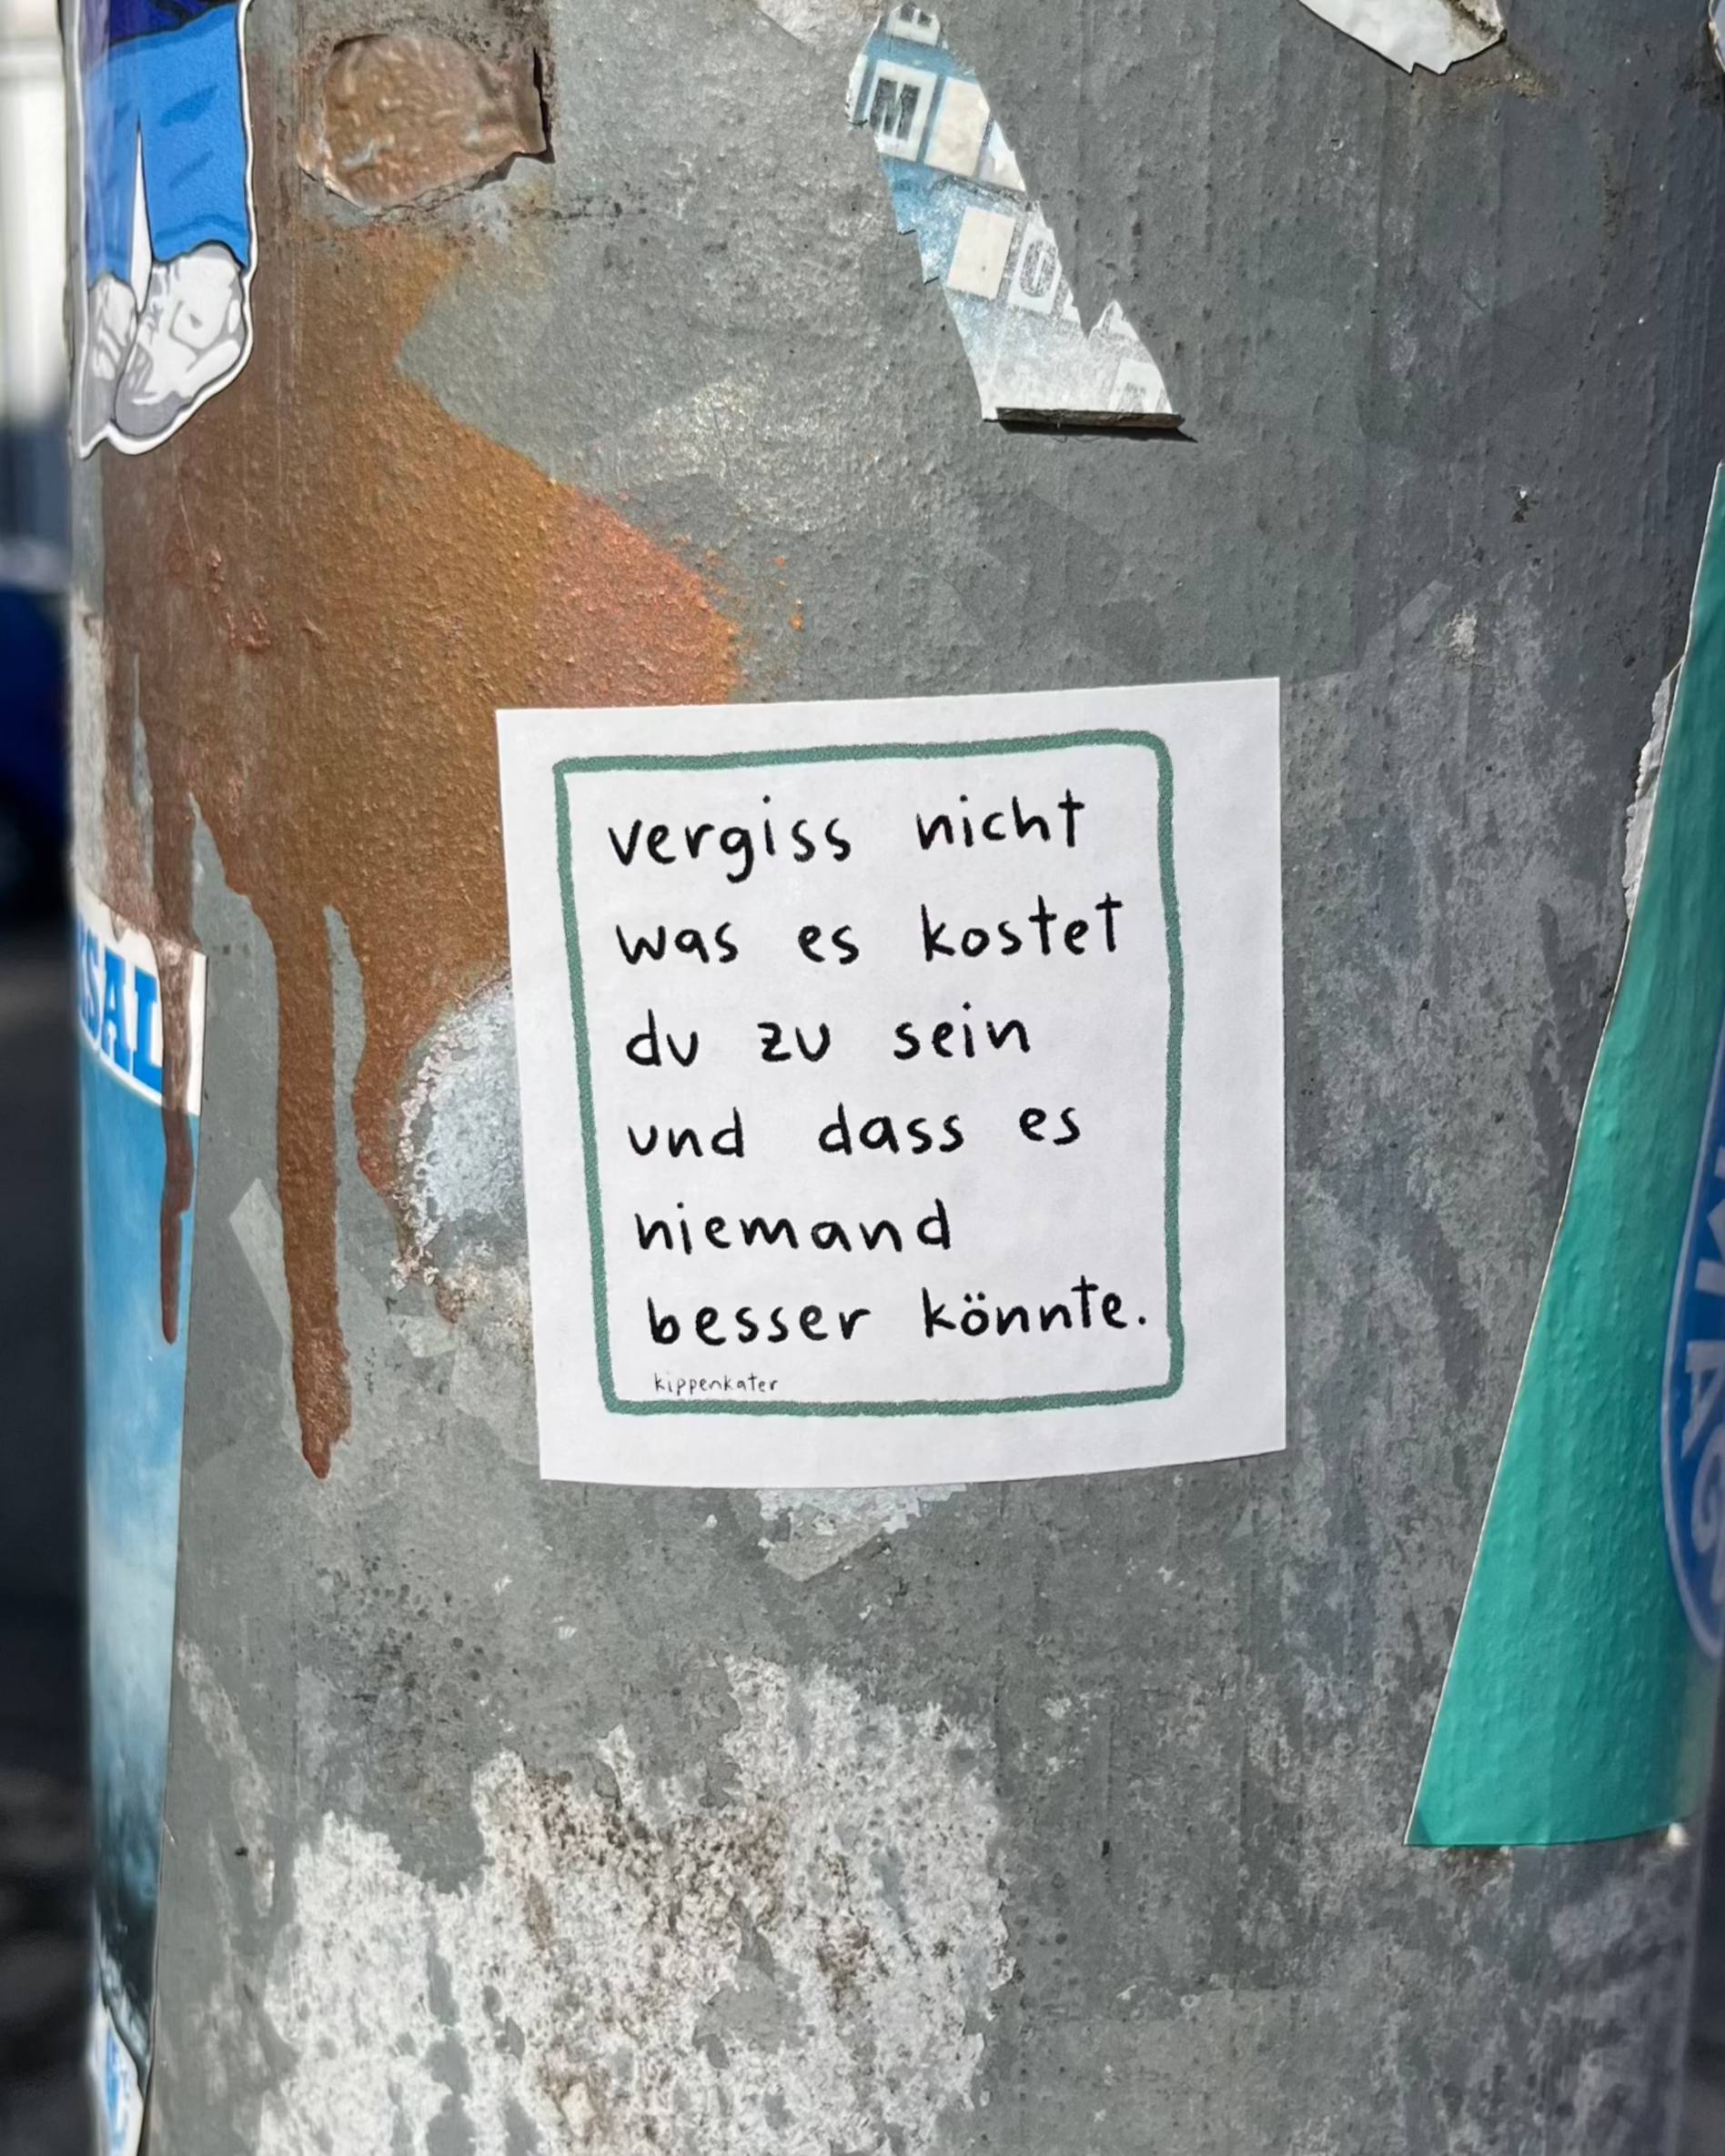 M
O
SAL
vergiss nicht
was es kostet
du zu sein
und dass es
niemand
besser könnte.
kippenkater